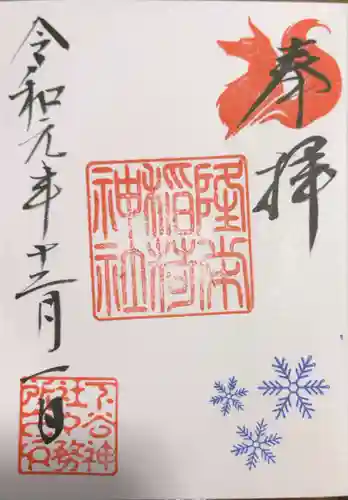 奉拝
隆栄
稲荷
神社
令和元年十二月一日
下谷神
社社務
所之印